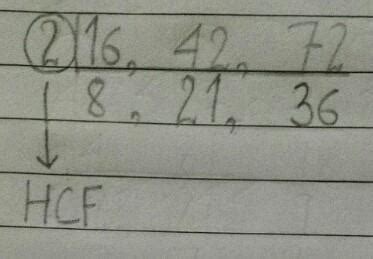 2 16, 42, 72
8, 21, 36
HCF